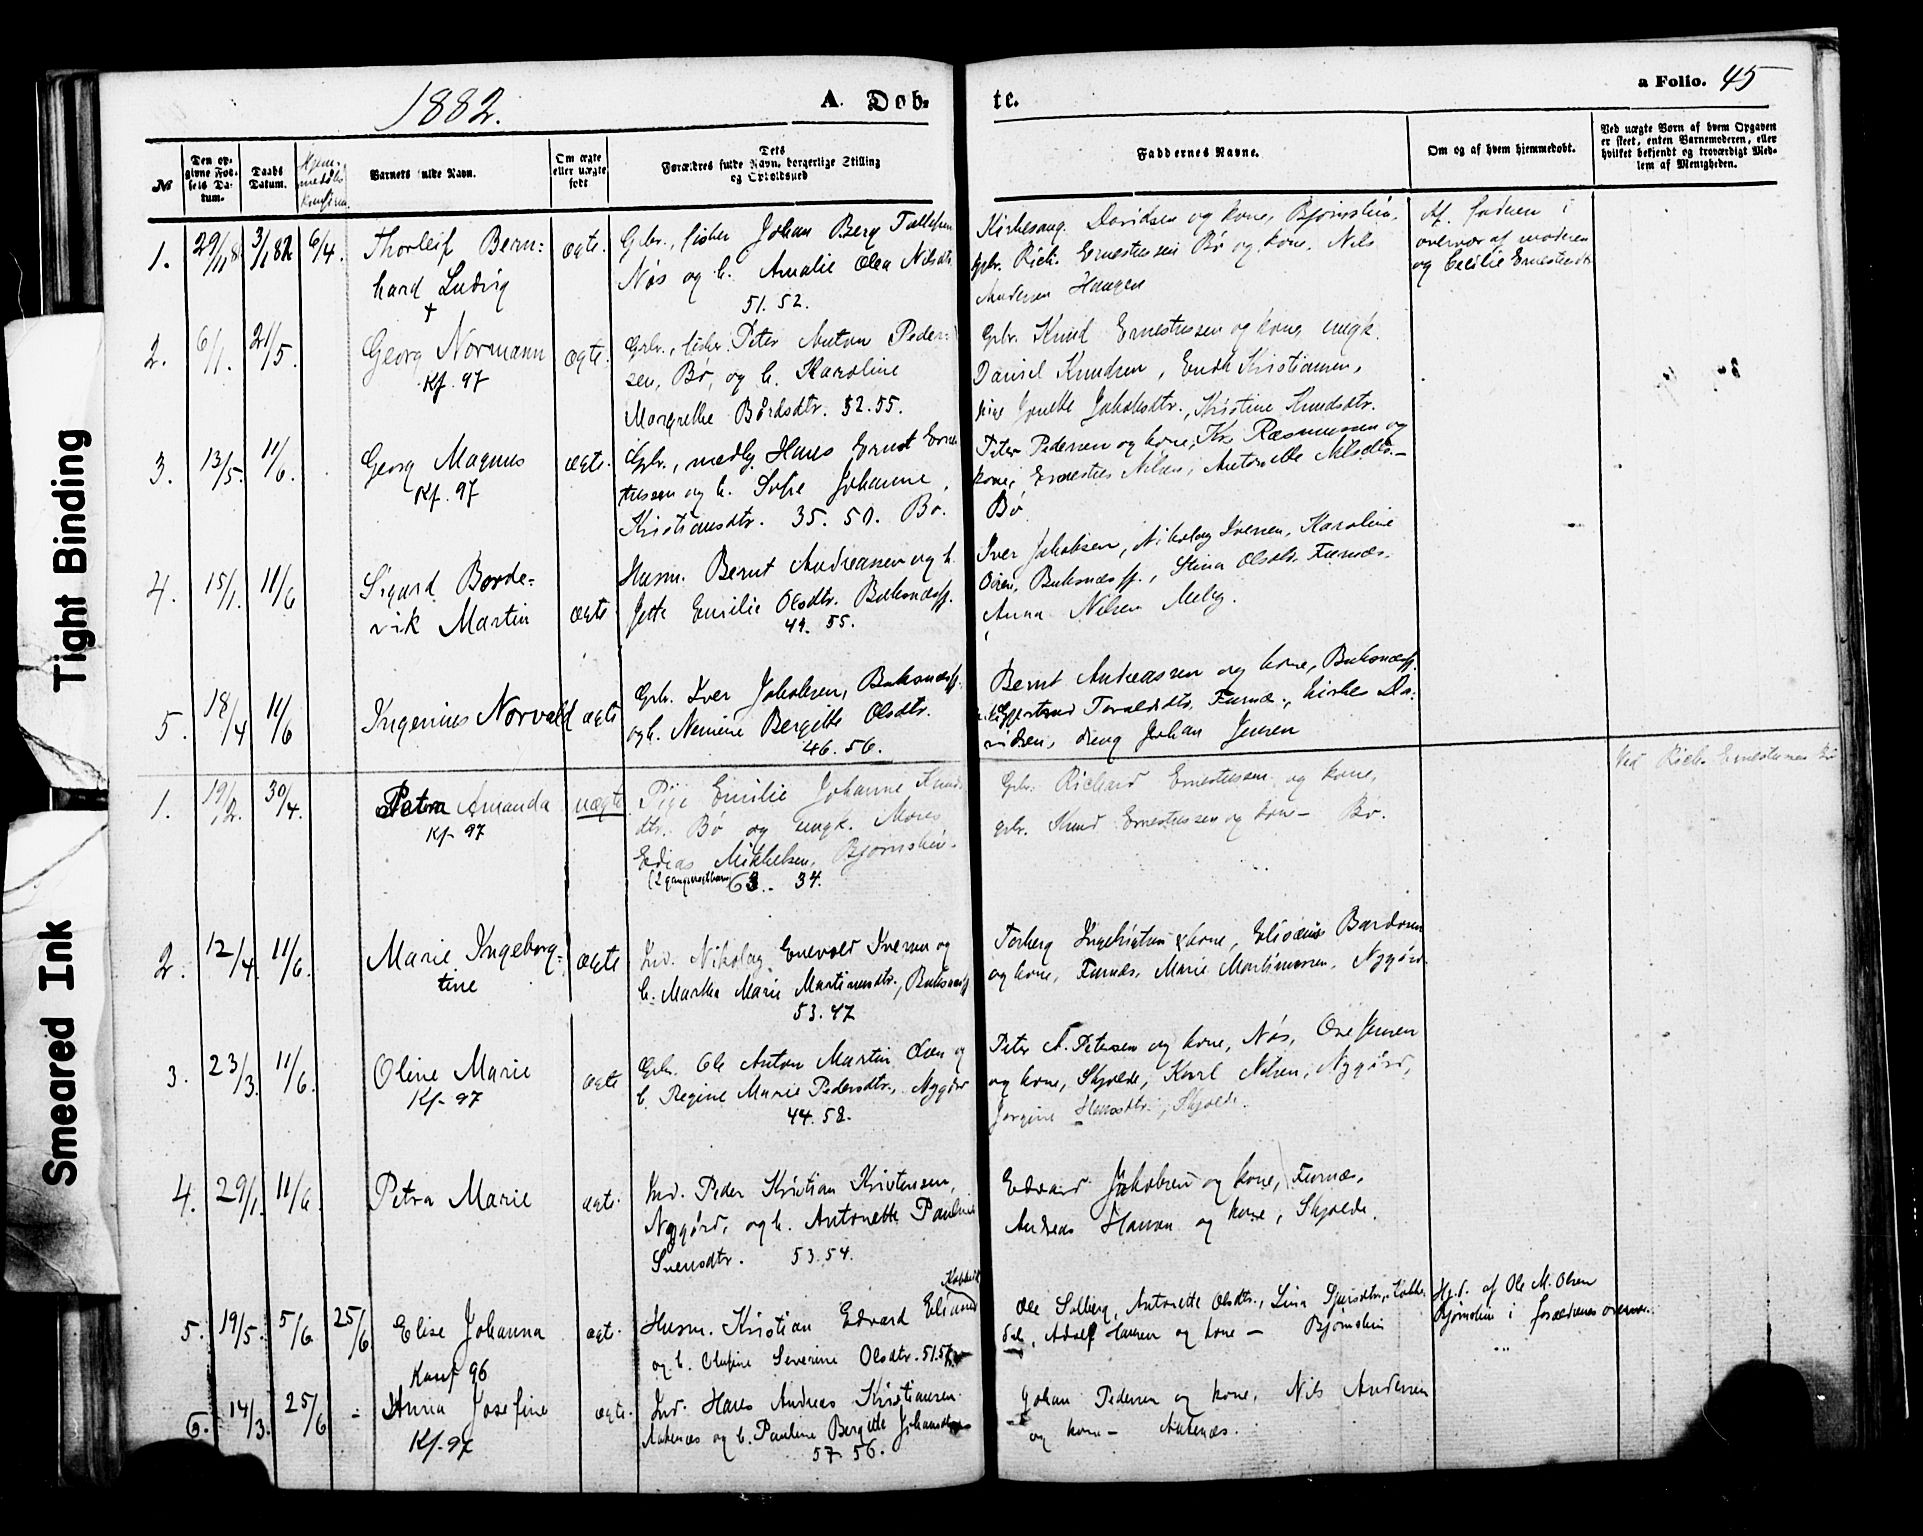 Tight Binding
Smeared Ink
1882.
A. Døb-
te.
a Folio. 45
№
Den op-
givne Fød-
sels Da-
tum.
Daabs
Datum.
Hjem-
medøbs
Barnets fulde Navn.
Om ægte
eller uægte
født
Dets
Forældres fulde Navn, borgerlige Stilling
og Opholdssted
Faddernes Navne.
Om og af hvem hjemmedøbt.
Ved uægte Børn af hvem Opgaven
er skeet, enten Barnemoderen, eller
hvilket bekjendt og troværdigt Med-
lem af Menigheden.
1. 29/11 81 3/1 82 6/4. Thorleif Bern-
hard Ludvig
+
ægte.
Gbr., fisker Johan Berg Tollefsen
Nøs og h. Amalie Olea Nilsdtr.
51. 52.
Kirkesang. Davidsen og kone, Bjørnskin,
gbr. Rich. Ernestussen Bø og kone, Nils
Andersen Haugen
Af faderen i
overvær af moderen
og Cecilie Ernestusdtr
2. 6/1. 21/5. Georg Normann
Kf. 97
ægte.
Gbr., fisker Peter Anton Peder-
sen, Bø, og h. Karoline
Margrethe Bårdsdtr. 52. 55.
Gbr. Knud Ernestussen og kone, ungk.
Daniel Knudsen, Enok Kristiansen,
pige Jonette Jakobsdtr., Kristine Knudsdtr.
3. 13/5. 11/6. Georg Magnus
Kf. 97
ægte.
Gbr., medhj. Hans Ernst Ernes-
tussen og h. Sofie Johanne
Kristiansdtr. 35. 50. Bø.
Peter Pedersen og kone, Kr. Rasmussen og
kone, Ernestus Nilsen, Antonette Nilsdtr. -
Bø
4. 15/1. 11/6 Sigard Borde-
vik Martin
ægte
Husm. Bernt Andreassen og h.
Jette Emilie Olsdtr. Buksnæsfj.
49. 55.
Iver Jakobsen, Nikolay Iversen, Karoline
Buksnæsfj., Stina Olsdtr. Furnæs.
Anna Nilsen Melby.
5. 18/4 11/6 Ingenius Norvald
ægte
Gbr. Iver Jakobsen, Buksnæsfj.
og h. Bergitte Olsdtr.
46. 56.
Bernt Andreassen og kone, Buksnæsfj.
Toraldsdtr. Furnæs, kirkes. Da-
vidsen, dreng Johan Jensen
1. 19/2. 30/4. Petra Amanda
Kf. 97
uægte
Pige Emilie Johanne Knuds
dtr. Bø og ungk. Mons
Edias Mikkelsen, Bjørnskin.
63. 34.
Gbr. Richard Ernestussen og kone,
gbr. Knud Ernestussen og kone - Bø.
Ved Rich. Ernestussen Bø
2. 12/4. 11/6. Marie Ingeborg-
tine
ægte
Ind. Nikolay Enevold Iversen og
h. Martha Marie Martinusdtr., Buksnæsfj
53. 47
Torberg Ingebrigtsen & kone, Elisæus Bardosen
og kone, Furnæs, Marie Martinussen, Nygård.
3. 23/3. 11/6. Oline Marie
Kf. 97
ægte
Gbr. Ole Anton Martin Olsen og
h. Regine Marie Pedersdtr., Nygård
44. 58.
Peter A. Petersen og kone, Nøs, Ove Jensen
og kone, Skjolde, Karl Nilsen, Nygård,
Jørgine Hansdtr., Skjolde.
4. 29/1. 11/6. Petra Marie
ægte.
Ind. Peder Kristian Kristensen,
Nygård, og h. Antonette Pauline
Svensdtr. 53. 54.
Edvard Jakobsen og kone, Furnæs,
Andreas Hansen og kone, Skjolde.
5. 19/5. 5/6. 25/6 Elise Johanna
Konf 96
ægte.
Husm. Kristian Edvard
og h. Olufine Severine Olsdtr. 51. 57.
Ole Solberg, Antonette Olsdtr., Lina
Adolf Hansen og kone - Bjørnskin
Hjd. af Ole M. Olsen
Bjørnskin i forældrenes overvær.
6. 14/3. 25/6 - Anna Josefine
Kf. 97
ægte.
Ind. Hans Andreas Kristiansen
Aakenæs og h. Pauline Bergitte Johansdtr
57. 56.
Johan Pedersen og kone, Nils Andersen
og kone - Aakenæs.